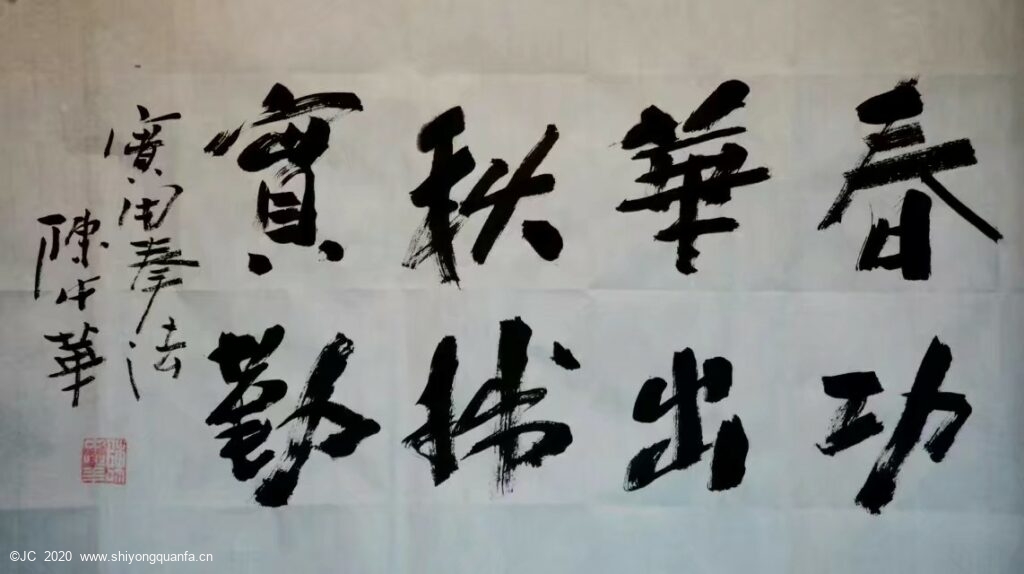 春華秋實
功出於勤
實用拳法
陳中華
©JC 2020 www.shiyongquanfa.cn